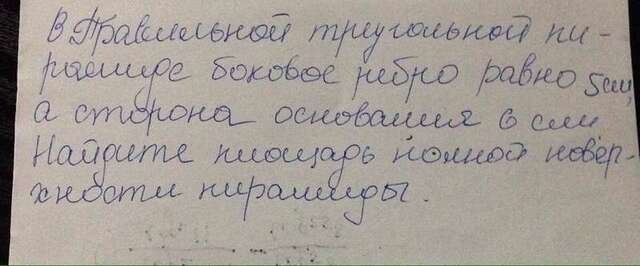 В Правильной треугольной пи-
рамиде боковое ребро равно 5см,
а сторона основания 6 см.
Найдите площадь полной повер-
хности пирамиды.